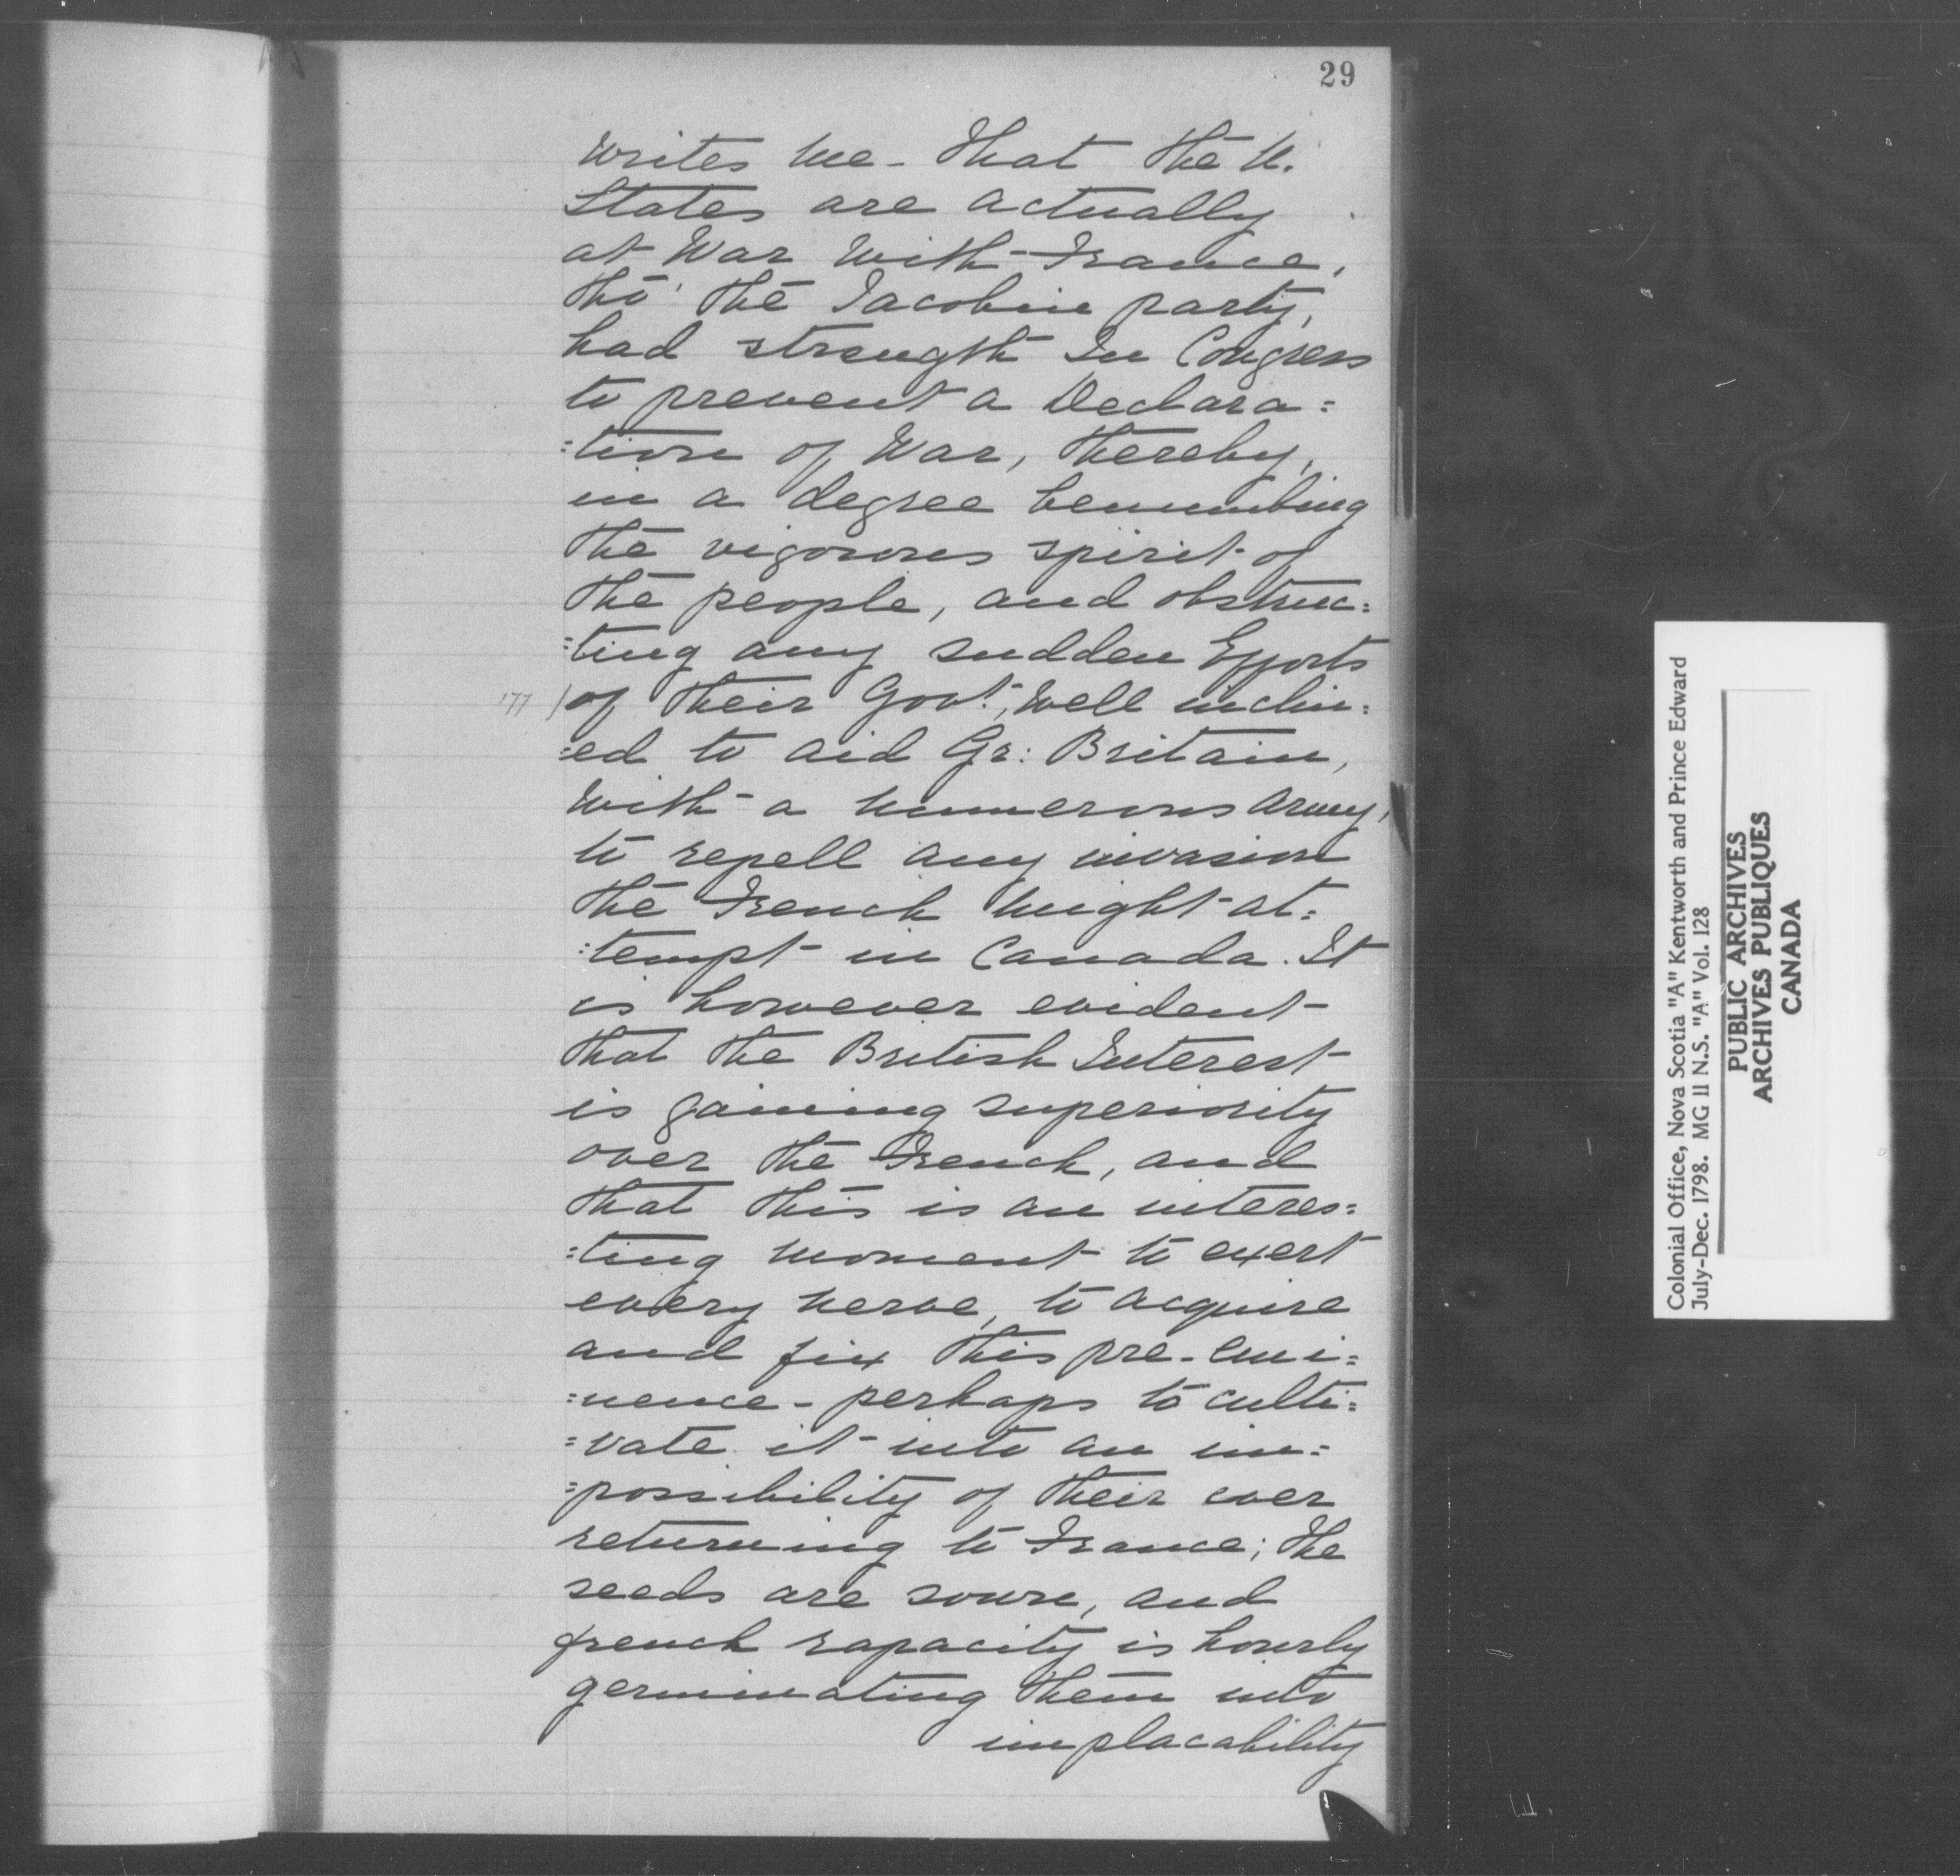 29
writes me - that the U.
States are actually
at War with France,
tho' the Jacobin party,
had strength in Congress
to prevent a Declara=
=tion of War, thereby,
in a degree benumbing
the vigorous spirit of
the people, and obstruc=
=ting any sudden Efforts
177 / of their Govt., well inclin=
=ed to aid Gr: Britain,
with a numerous army,
to repell any invasion
the French might at=
=tempt in Canada. It
is however evident
that the British Interest
is gaining superiority
over the French, and
that this is an interes=
=ting moment to exert
every nerve, to acquire
and fix this pre-emi=
=nence - perhaps to culti=
=vate it into an im=
=possibility of their ever
returning to France; the
seeds are sown, and
french rapacity is hourly
germinating them into
implacability
Colonial Office, Nova Scotia "A" Kentworth and Prince Edward
July-Dec. 1798. MG 11 N.S. "A" Vol. 128
PUBLIC ARCHIVES
ARCHIVES PUBLIQUES
CANADA